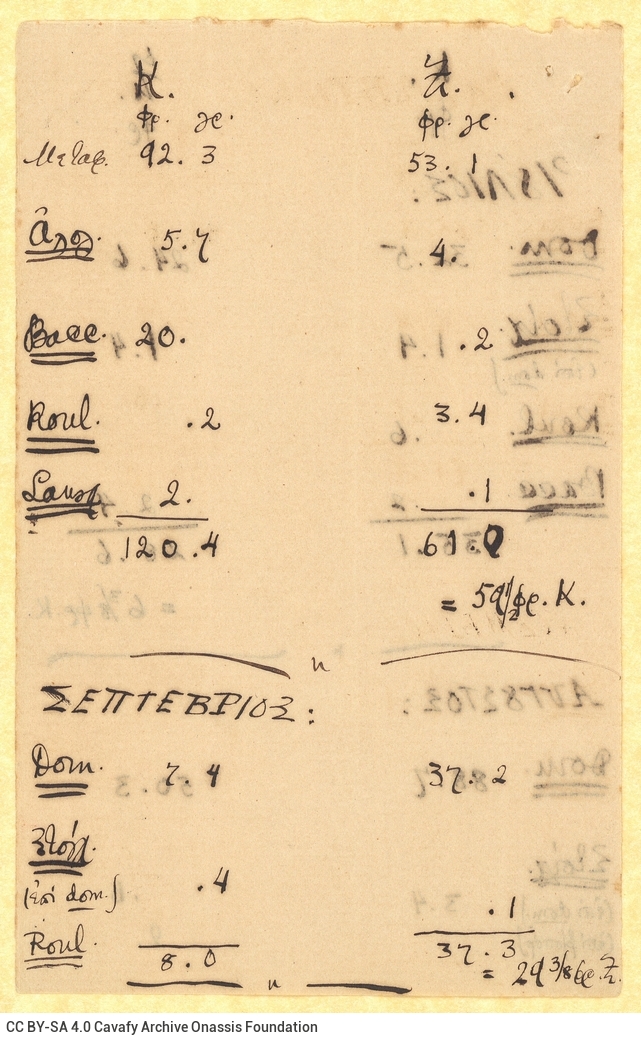 Κ. Ζ.
φρ. γε. φρ. γε.
Μεταφ. 92. 3 53. 1
5. 7 4.
Βacc. 20. . 2
Roul. . 2 3. 4
2. . 1
120. 4 61. 0
= 59 1/2 φρ. Κ.
ΣΕΠΤΕΒΡΙΟΣ:
Dom. 7. 4 37. 2
Στοιχ.
(ἐπί dom.) . 4
Roul. . 1
8. 0 37. 3
= 29 3/8 φρ. Ζ.
CC BY-SA 4.0 Cavafy Archive Onassis Foundation